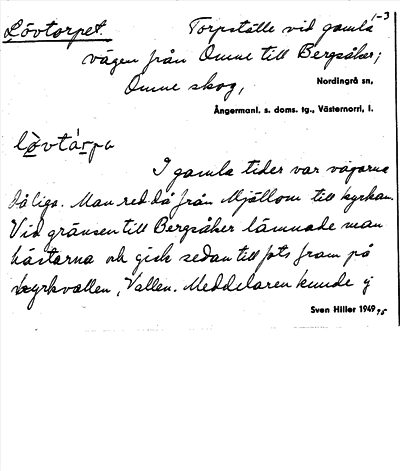 1-3
Lövtorpet. Torpställe vid gamla
vägen från Omne till Bergsåker;
Omne skog, Nordingrå sn,
Ångermanl. s. doms. tg., Västernorrl. l.
I gamla tider var vägarna
dåliga. Man red då från Mjällom till kyrkan.
Vid gränsen till Bergsåker lämnade man
hästarna och gick sedan till fots fram på
kyrkvallen, Vallen. Meddelaren kunde ej
Sven Hiller 1949